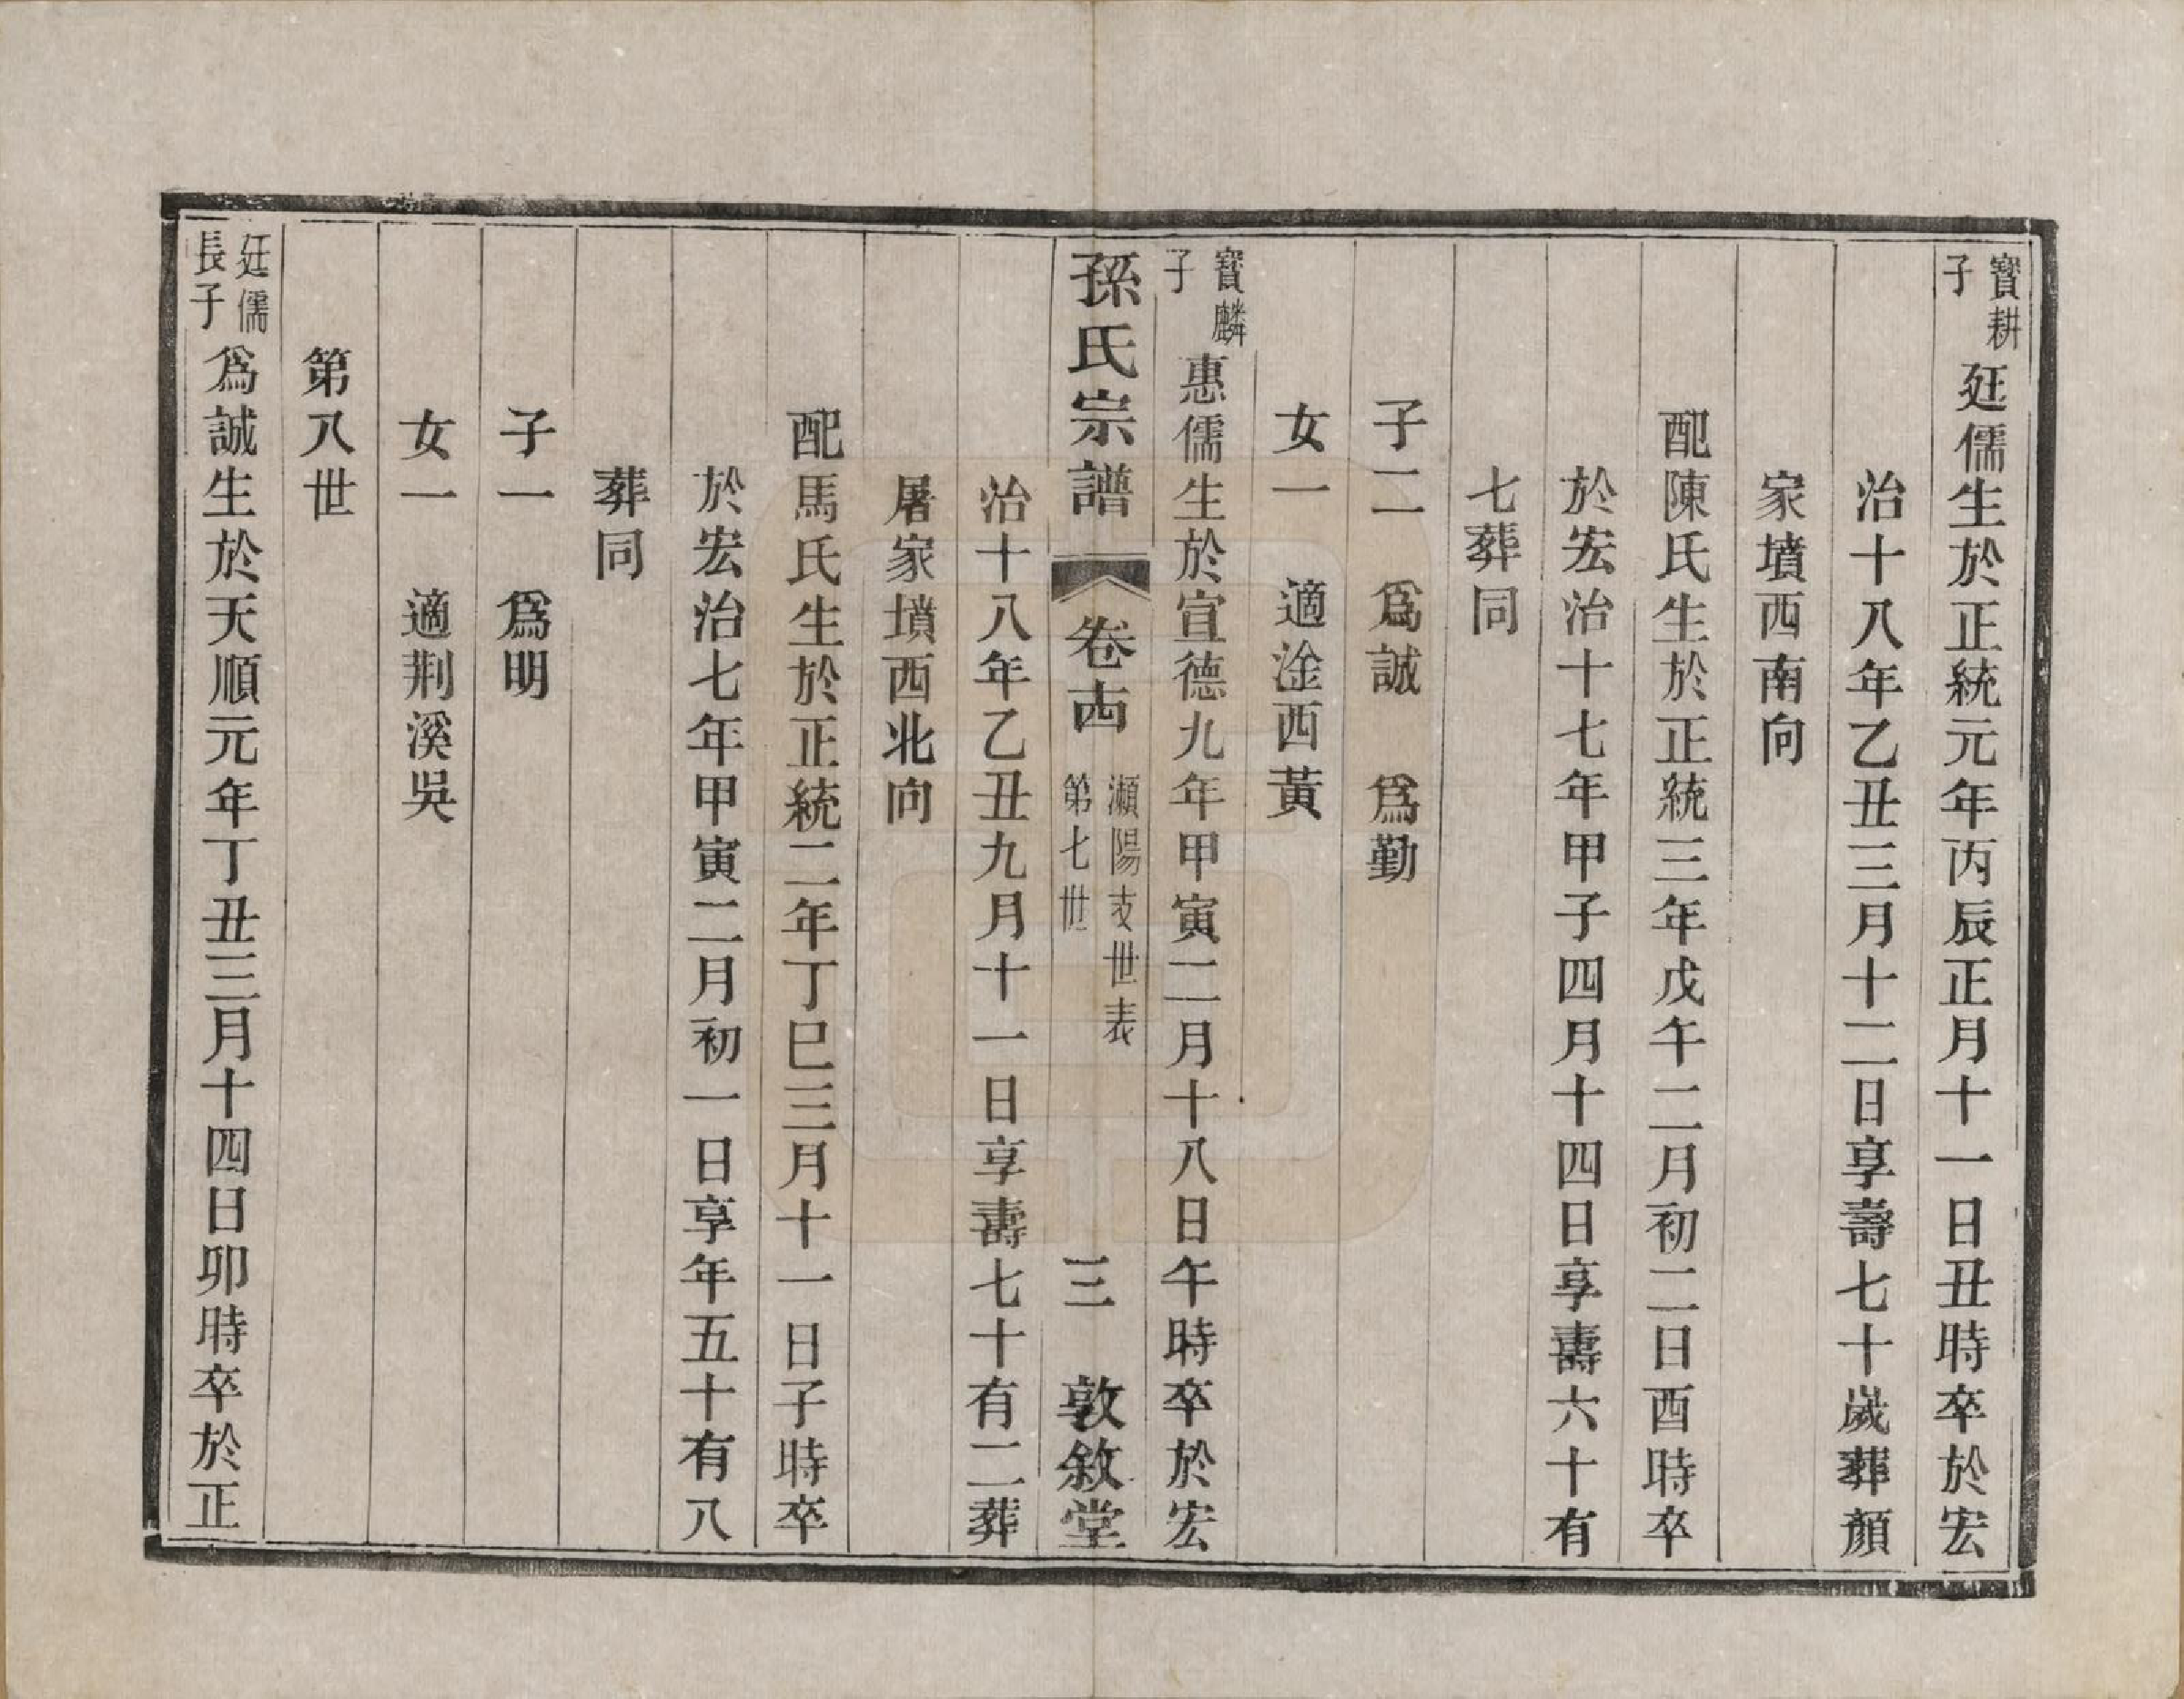 寳耕子 廷儒生於正統元年丙辰正月十一日丑時卒於宏
治十八年乙丑三月十二日享壽七十歲葬顏
家墳西南向
配陳氏生於正統三年戊午二月初二日酉時卒
於宏治十七年甲子四月十四日享壽六十有
七葬同
子二 爲誠 爲勤
女一 適淦西黃
寳麟子 惠儒生於宣德九年甲寅二月十八日午時卒於宏
孫氏宗譜 卷十四 瀬陽支世表 第七世 三 敦敘堂
治十八年乙丑九月十一日享壽七十有二葬
屠家墳西北向
配馬氏生於正統二年丁巳三月十一日子時卒
於宏治七年甲寅二月初一日享年五十有八
葬同
子一 爲明
女一 適荆溪吳
第八世
廷儒長子 爲誠生於天順元年丁丑三月十四日卯時卒於正